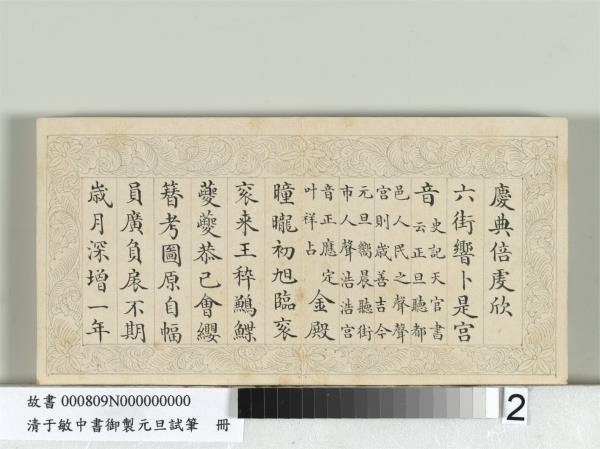 慶典倍虔欣
六街響卜是宮
音史記天官書
云正旦聽都
邑人民之聲聲
宮則歲善吉今
元旦嚮晨聽街
市人聲浩浩宮
音正應定
叶祥占金殿
曈曨初旭臨裒
裒来王稡鶼鰈
夔夔恭己會纓
簪考圖原自幅
員廣負扆不期
歲月深增一年
故書 000809N000000000
清于敏中書御製元旦試筆 冊
2